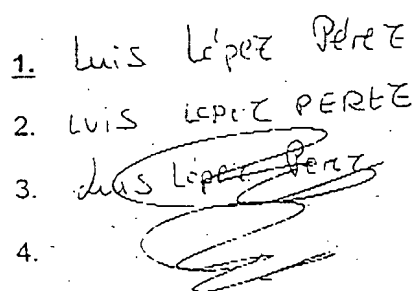 1. Luis López Pérez
2. LUIS LOPEZ PEREZ
3. Luis López Perez
4.